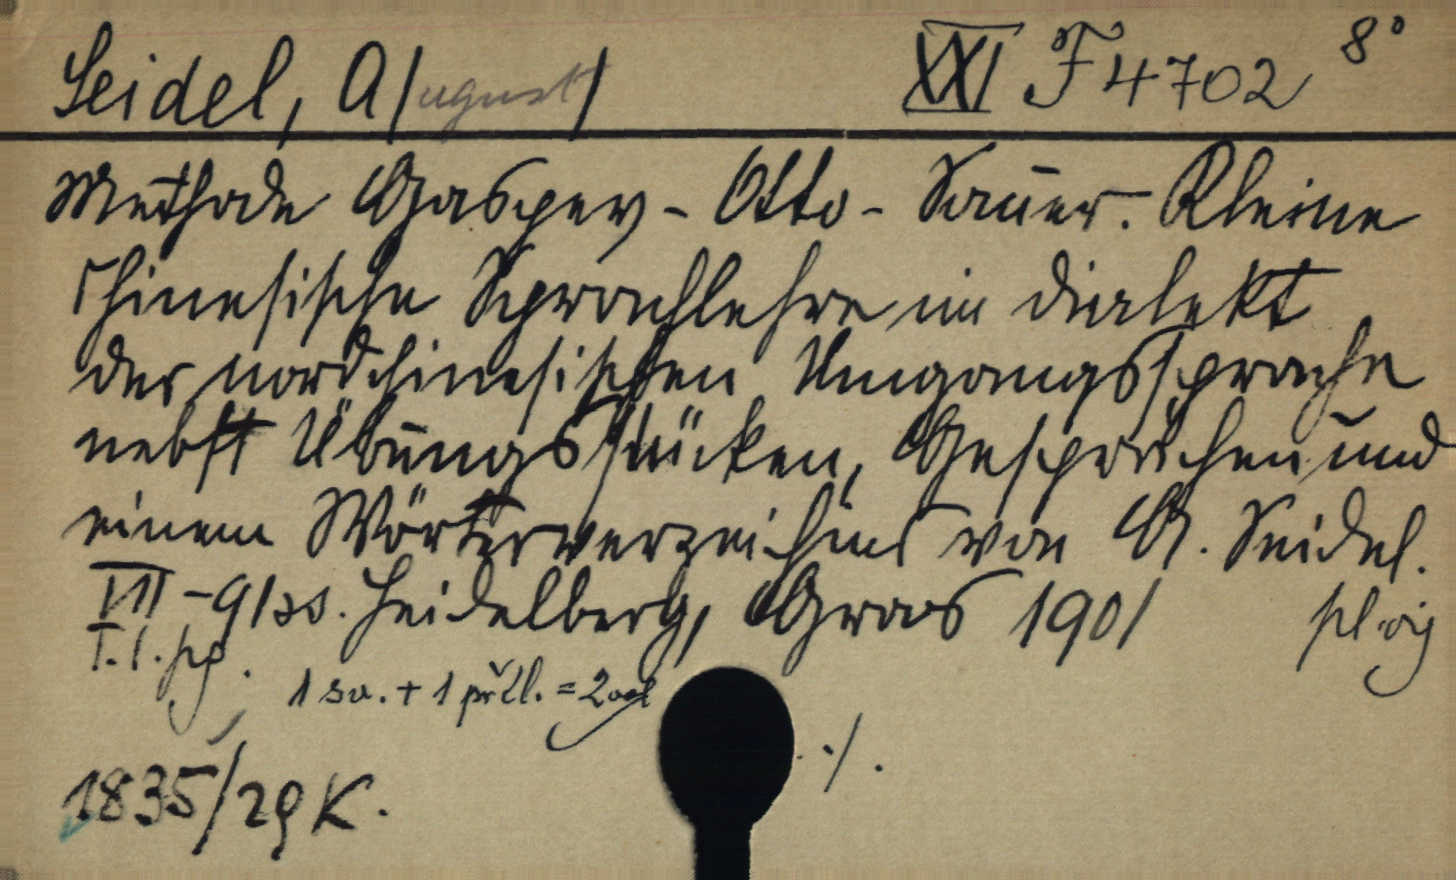 Seidel, A/ugust/ XXI F 4702 8°
Methode Gaspey-Otto-Sauer. Kleine
chinesische Sprachlehre im Dialekt
der nordchinesischen Umgangssprache
nebst Übungsstücken, Gesprächen und
einem Wörterverzeichnis von A. Seidel.
VII-91 ss. Heidelberg, Groos 1901
1 sv. + 1 příl. =
./.
1835/29 K.